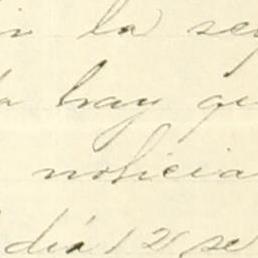 la se
hay qu
noticia
dia 12 se